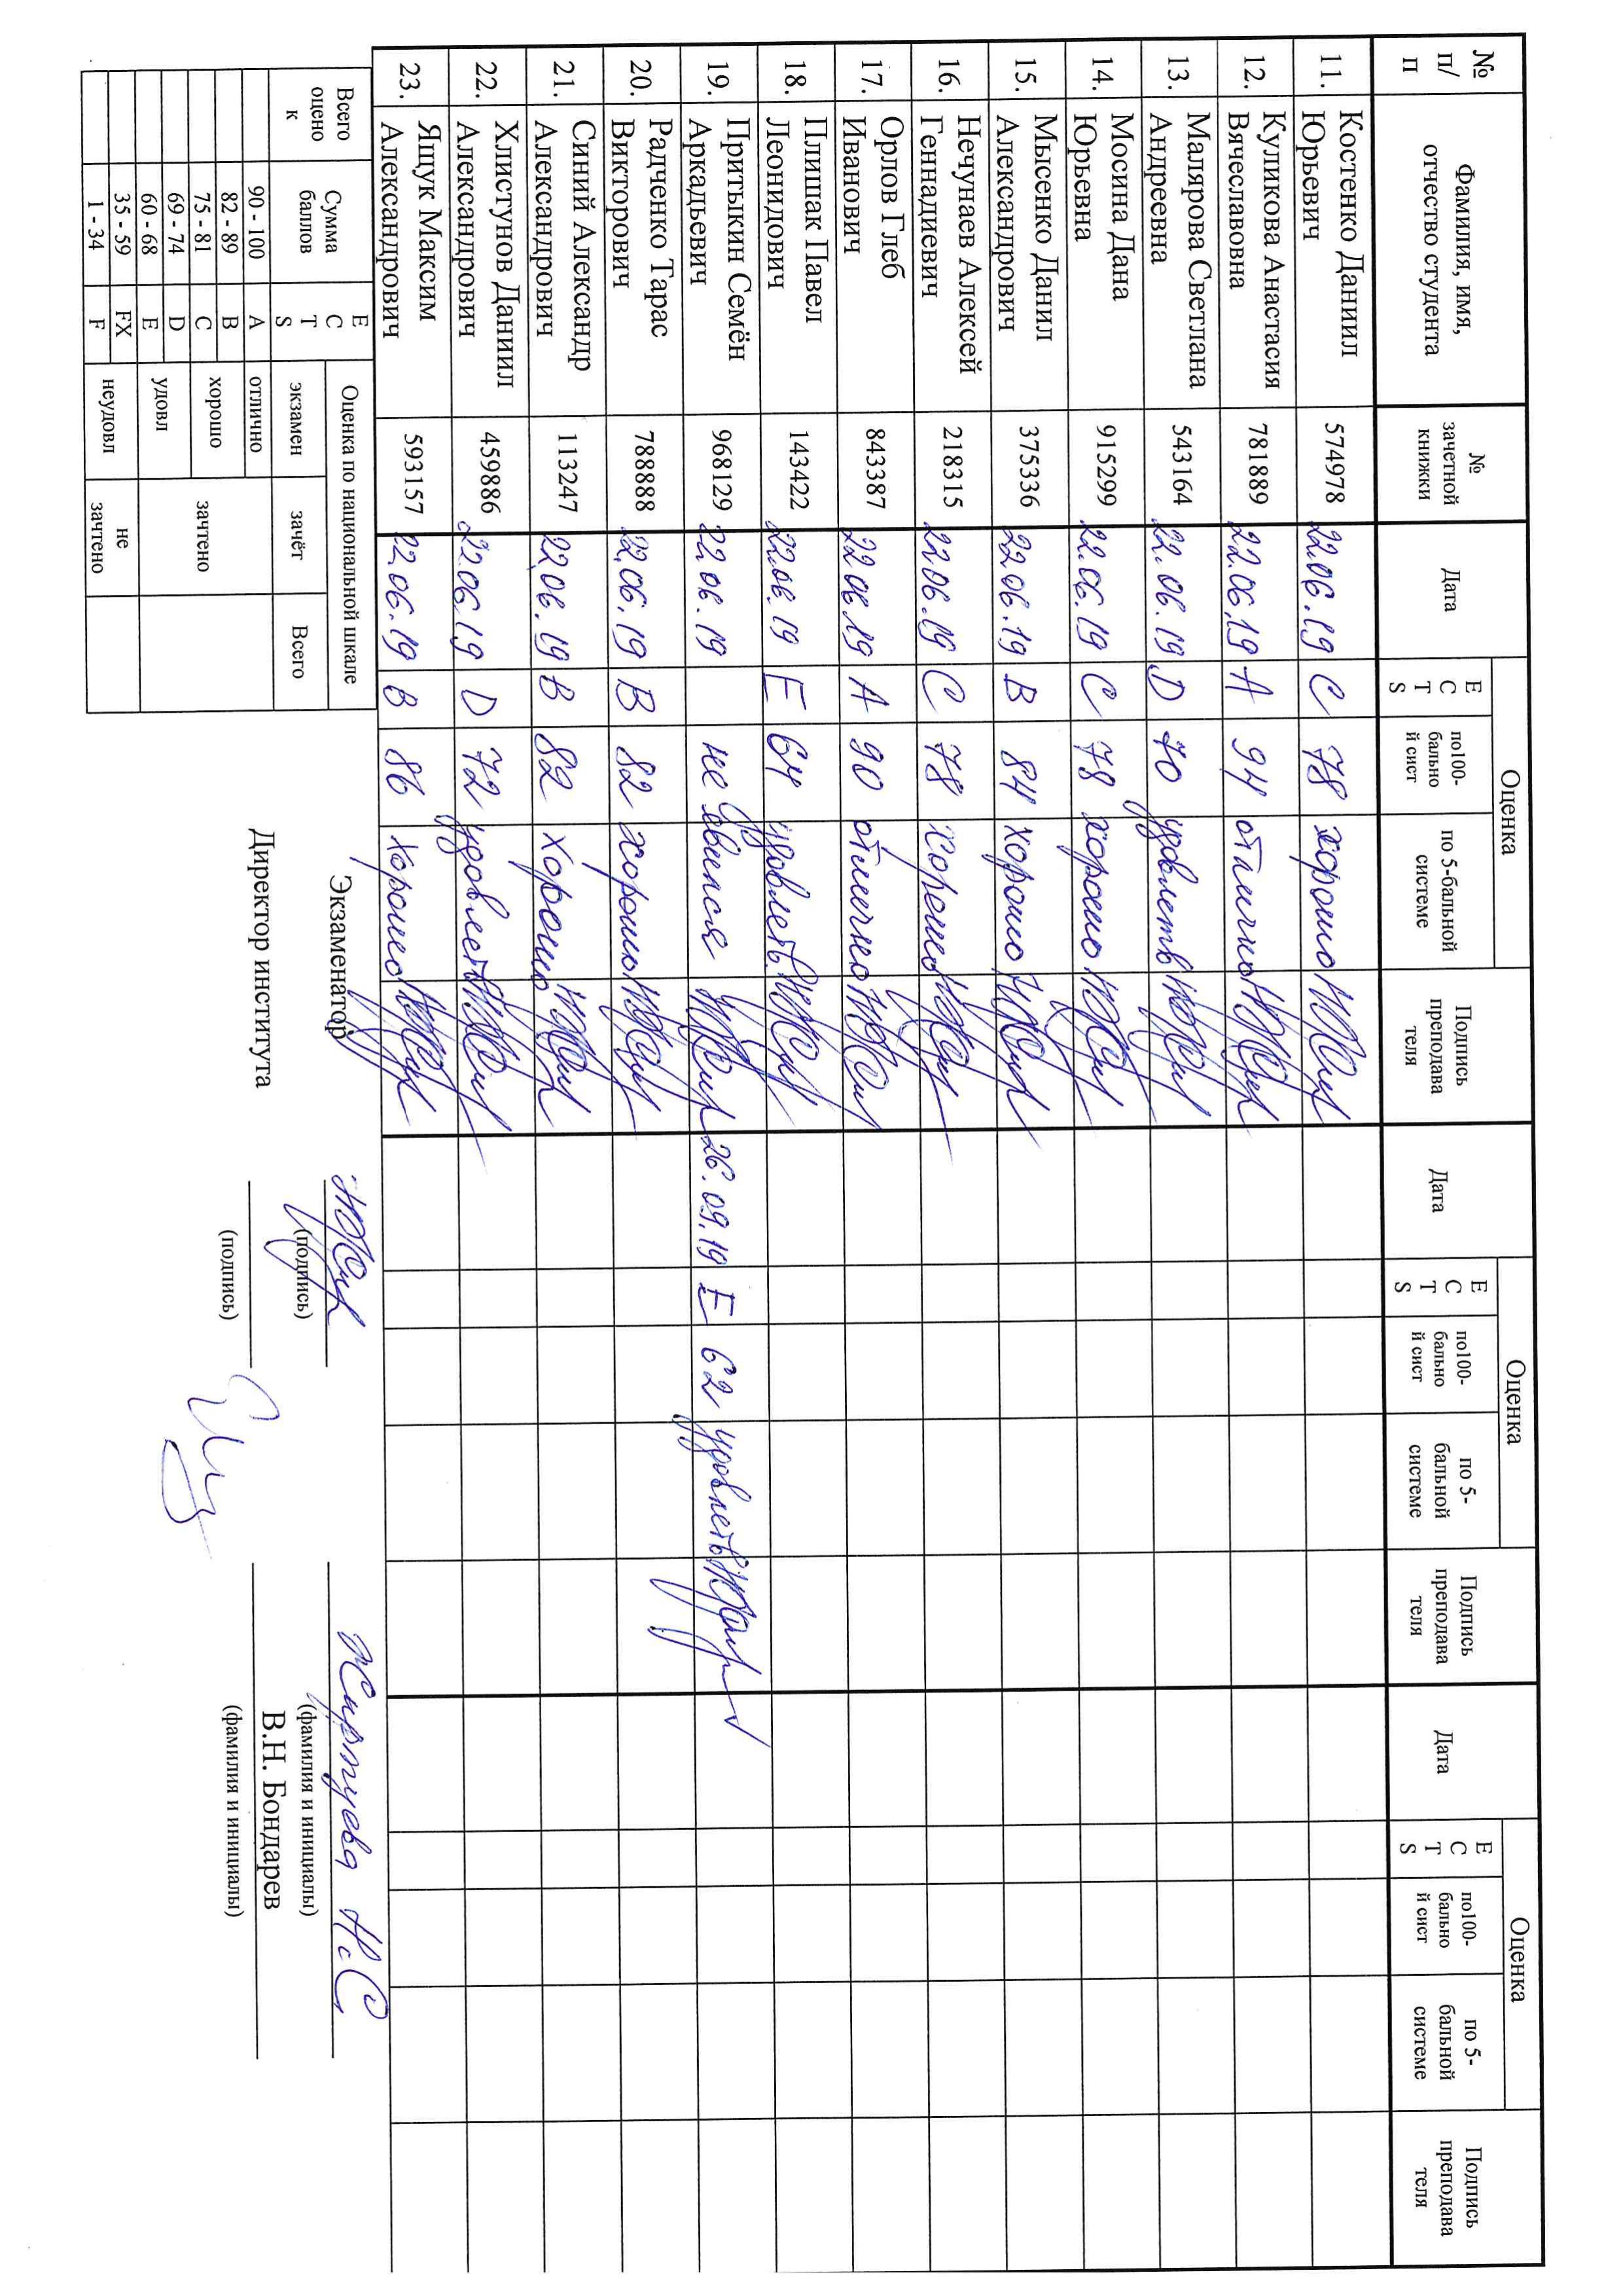 № п/п Фамилия, имя, отчество студента № зачетной книжки Дата Оценка ECTS по100-бально й сист по 5-бальной системе Подпись преподава теля Дата Оценка ECTS по100-бально й сист по 5-бальной системе Подпись преподава теля Дата Оценка ECTS по100-бально й сист по 5-бальной системе Подпись преподава теля
11. Костенко Даниил Юрьевич 574978 22.06.19 C 78 хорошо
12. Куликова Анастасия Вячеславовна 781889 22.06.19 A 94 отлично
13. Малярова Светлана Андреевна 543164 22.06.19 D 70 удовлетв
14. Мосина Дана Юрьевна 915299 22.06.19 C 78 хорошо
15. Мысенко Данил Александрович 375336 22.06.19 B 84 хорошо
16. Нечунаев Алексей Геннадиевич 218315 22.06.19 C 78 хорошо
17. Орлов Глеб Иванович 843387 22.06.19 A 90 отлично
18. Плишак Павел Леонидович 143422 22.06.19 E 64 удовлетв.
19. Притыкин Семён Аркадьевич 968129 22.06.19 не явился 26.09.19 E 62 удовлетв
20. Радченко Тарас Викторович 788888 22.06.19 B 82 хорошо
21. Синий Александр Александрович 113247 22.06.19 B 82 хорошо
22. Хлистунов Даниил Александрович 459886 22.06.19 D 72 удовлетв
23. Ящук Максим Александрович 593157 22.06.19 B 86 хорошо
Всего оцено к Сумма баллов ECTS Оценка по национальной шкале
экзамен зачёт Всего
90 - 100 A отлично
82 - 89 B хорошо
75 - 81 C зачтено
69 - 74 D удовл
60 - 68 E
35 - 59 FX неудовл не зачтено
1 - 34 F
Экзаменатор Н.С
(подпись) (фамилия и инициалы)
Директор института В.Н. Бондарев
(подпись) (фамилия и инициалы)